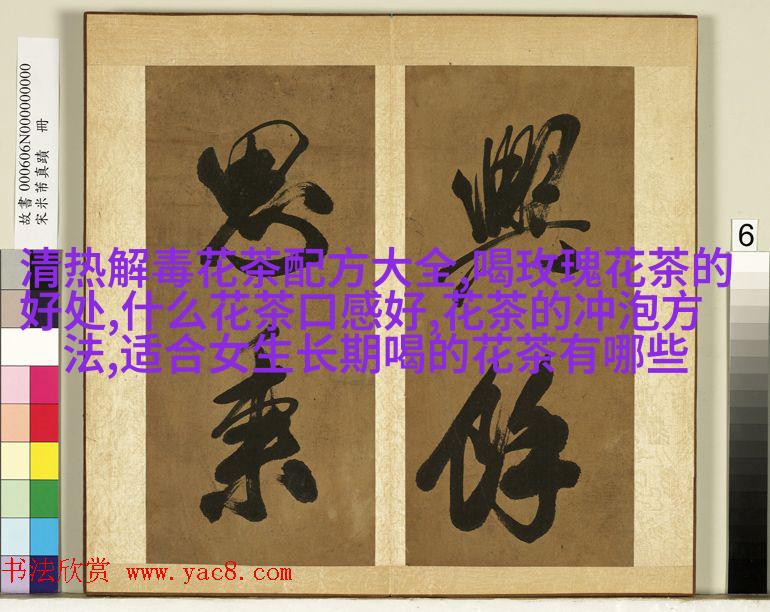 故書 000606N000000000
宋米芾真蹟 冊
6
興
餘
清热解毒花茶配方大全,喝玫瑰花茶的
好处,什么花茶口感好,花茶的冲泡方
法,适合女生长期喝的花茶有哪些
书法欣赏 www.yac8.com